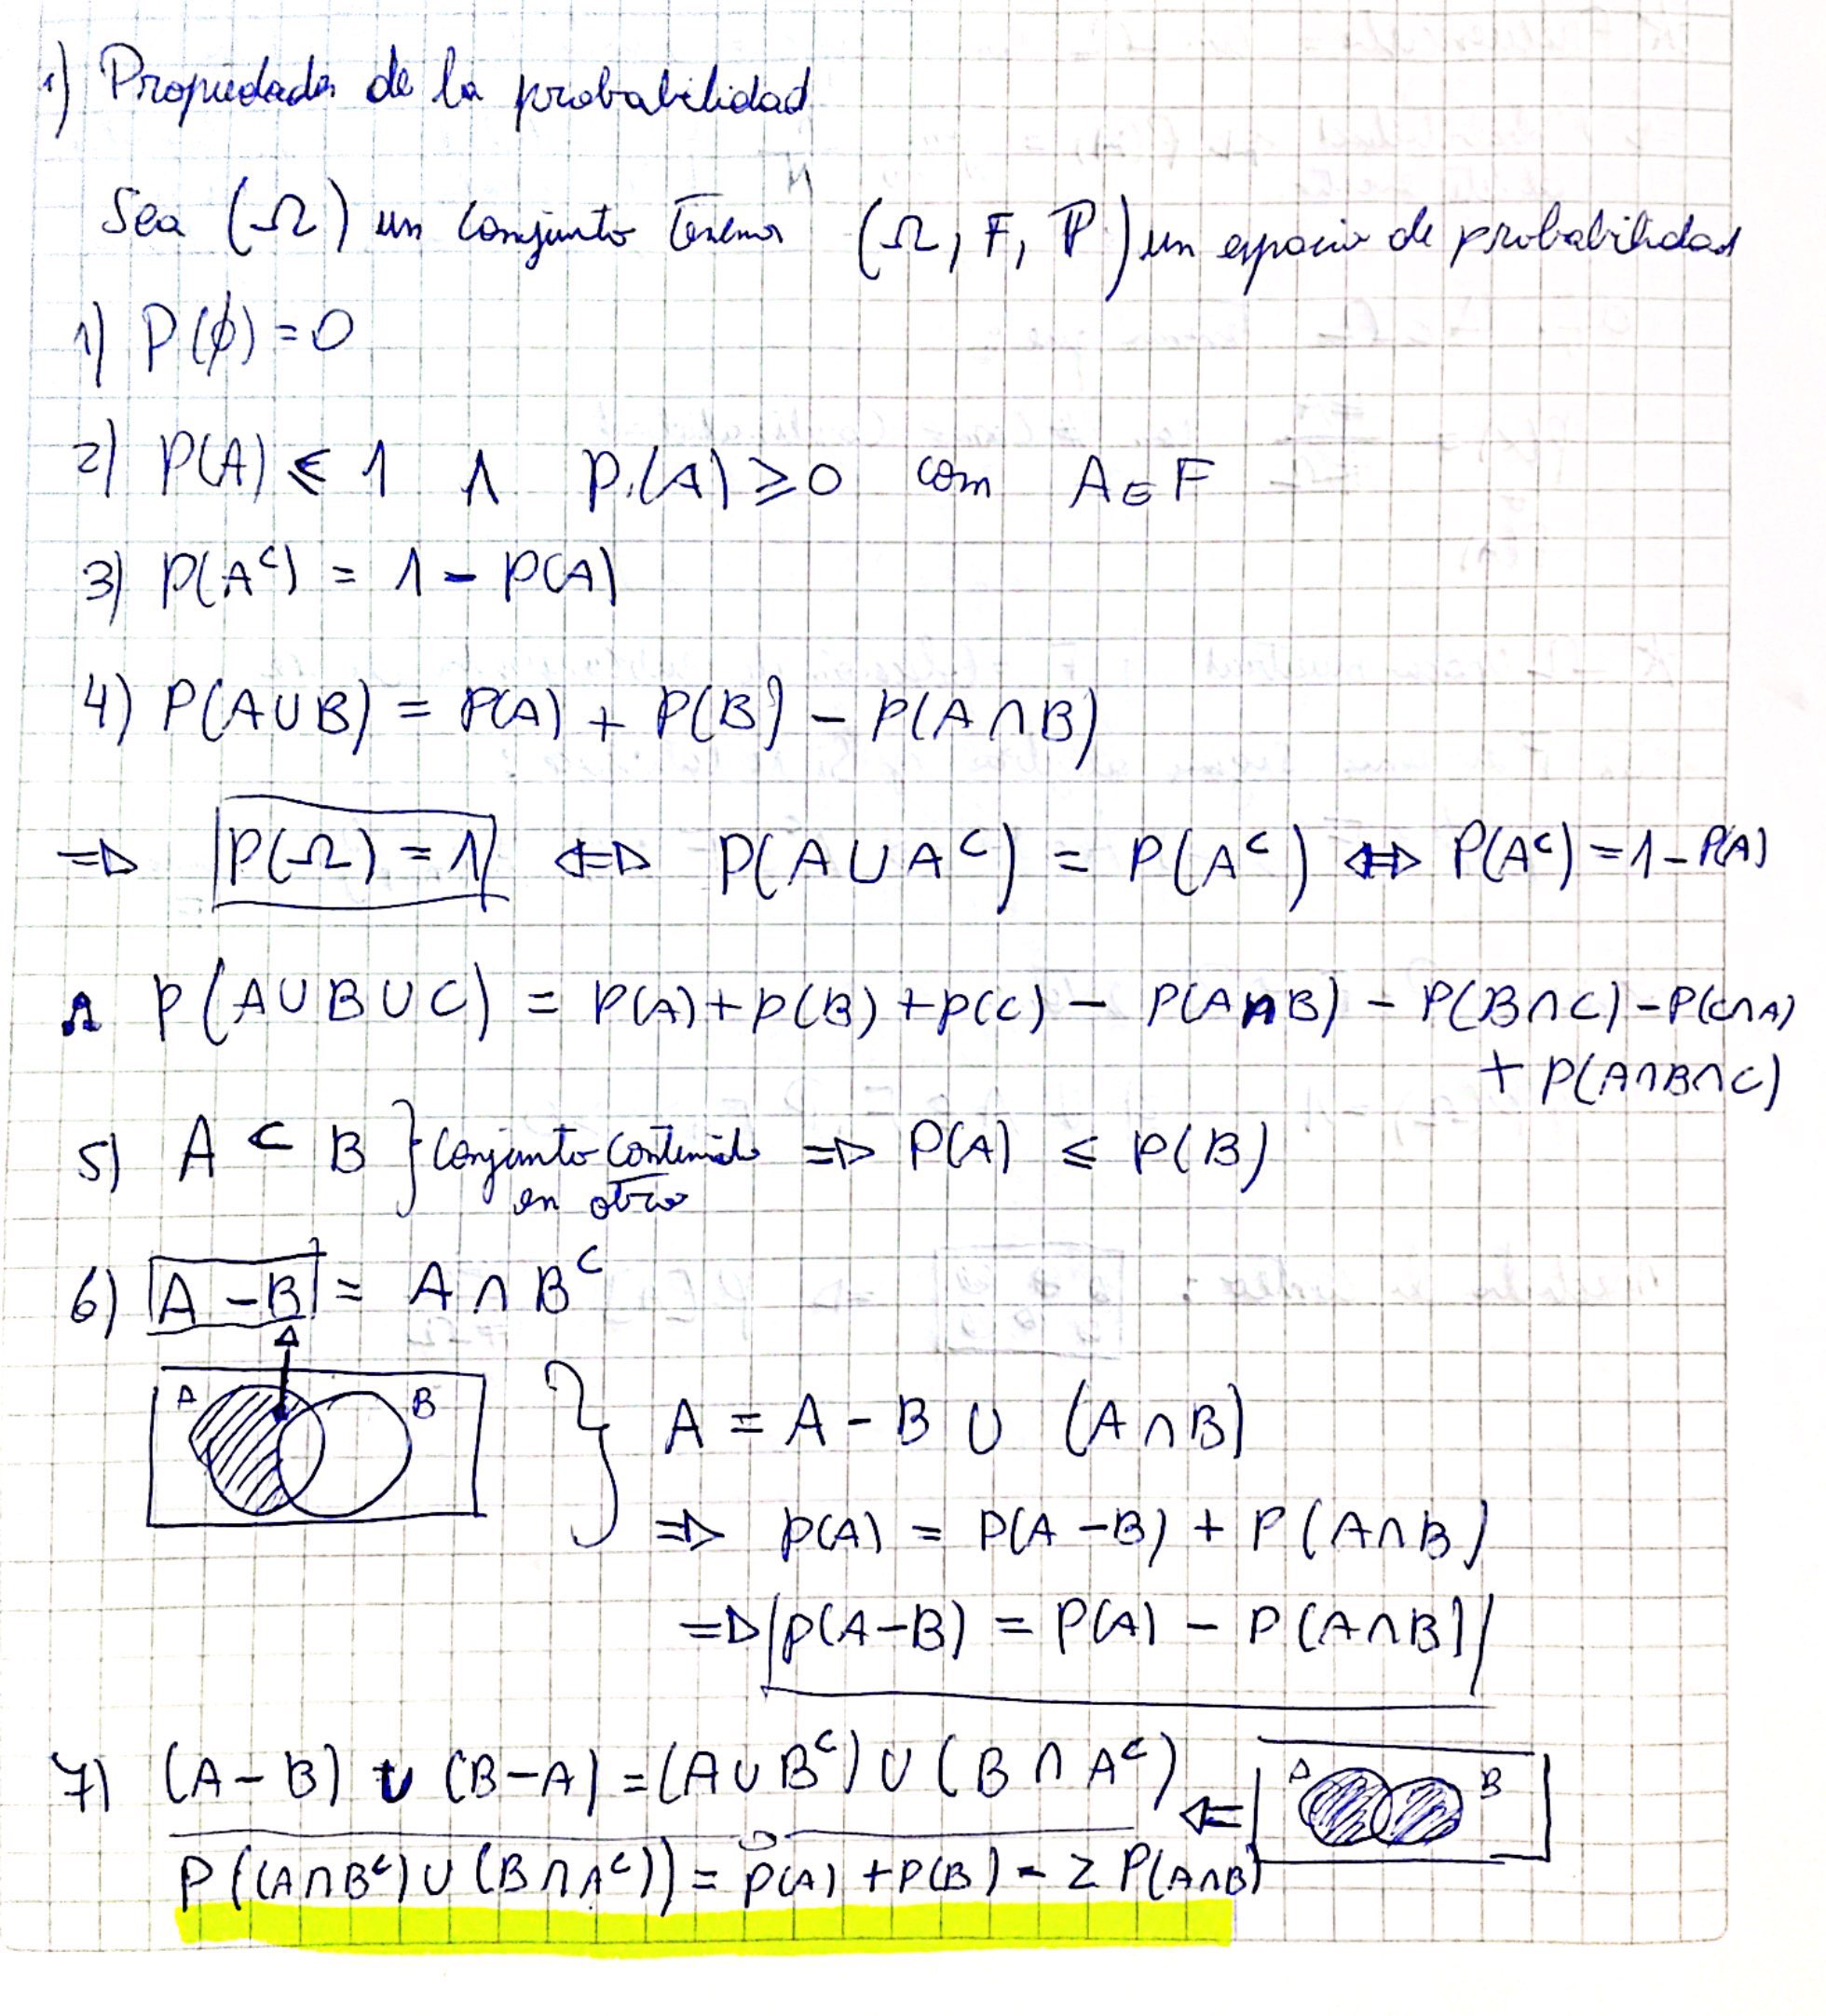 1) Propiedades de la probabilidad
Sea (Ω) un conjunto tenemos (Ω, F, ℙ) un espacio de probabilidad
1) P(∅) = 0
2) P(A) ≤ 1 ∧ P(A) ≥ 0 com A ∈ F
3) P(Aᶜ) = 1 - P(A)
4) P(A∪B) = P(A) + P(B) - P(A∩B)
⇒ P(Ω) = 1 ⇔ P(A∪Aᶜ) = P(Aᶜ) ⇔ P(Aᶜ) = 1 - P(A)
∧ P(A∪B∪C) = P(A) + P(B) + P(C) - P(A∩B) - P(B∩C) - P(C∩A)
+ P(A∩B∩C)
5) A ⊂ B } Conjunto contenido ⇒ P(A) ≤ P(B)
en otro
6) A - B = A ∩ Bᶜ
A B } A = A - B ∪ (A∩B)
⇒ P(A) = P(A-B) + P(A∩B)
⇒ P(A-B) = P(A) - P(A∩B)
7) (A-B) ∪ (B-A) = (A∪Bᶜ) ∪ (B∩Aᶜ) ⇐ A B
P((A∩Bᶜ)∪(B∩Aᶜ)) = P(A) + P(B) - 2 P(A∩B)